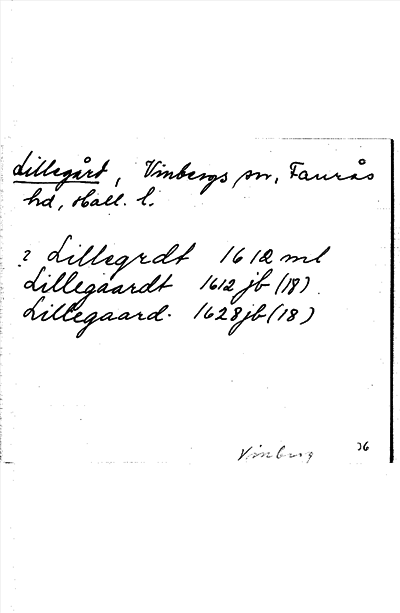 Lillegård, Vinbergs sn, Faurås
hd, Hall. l.
? Lillegrdt 1612 ml
Lillegaardt 1612 jb (18)
Lillegaard 1628 jb (18)
Vinberg 36